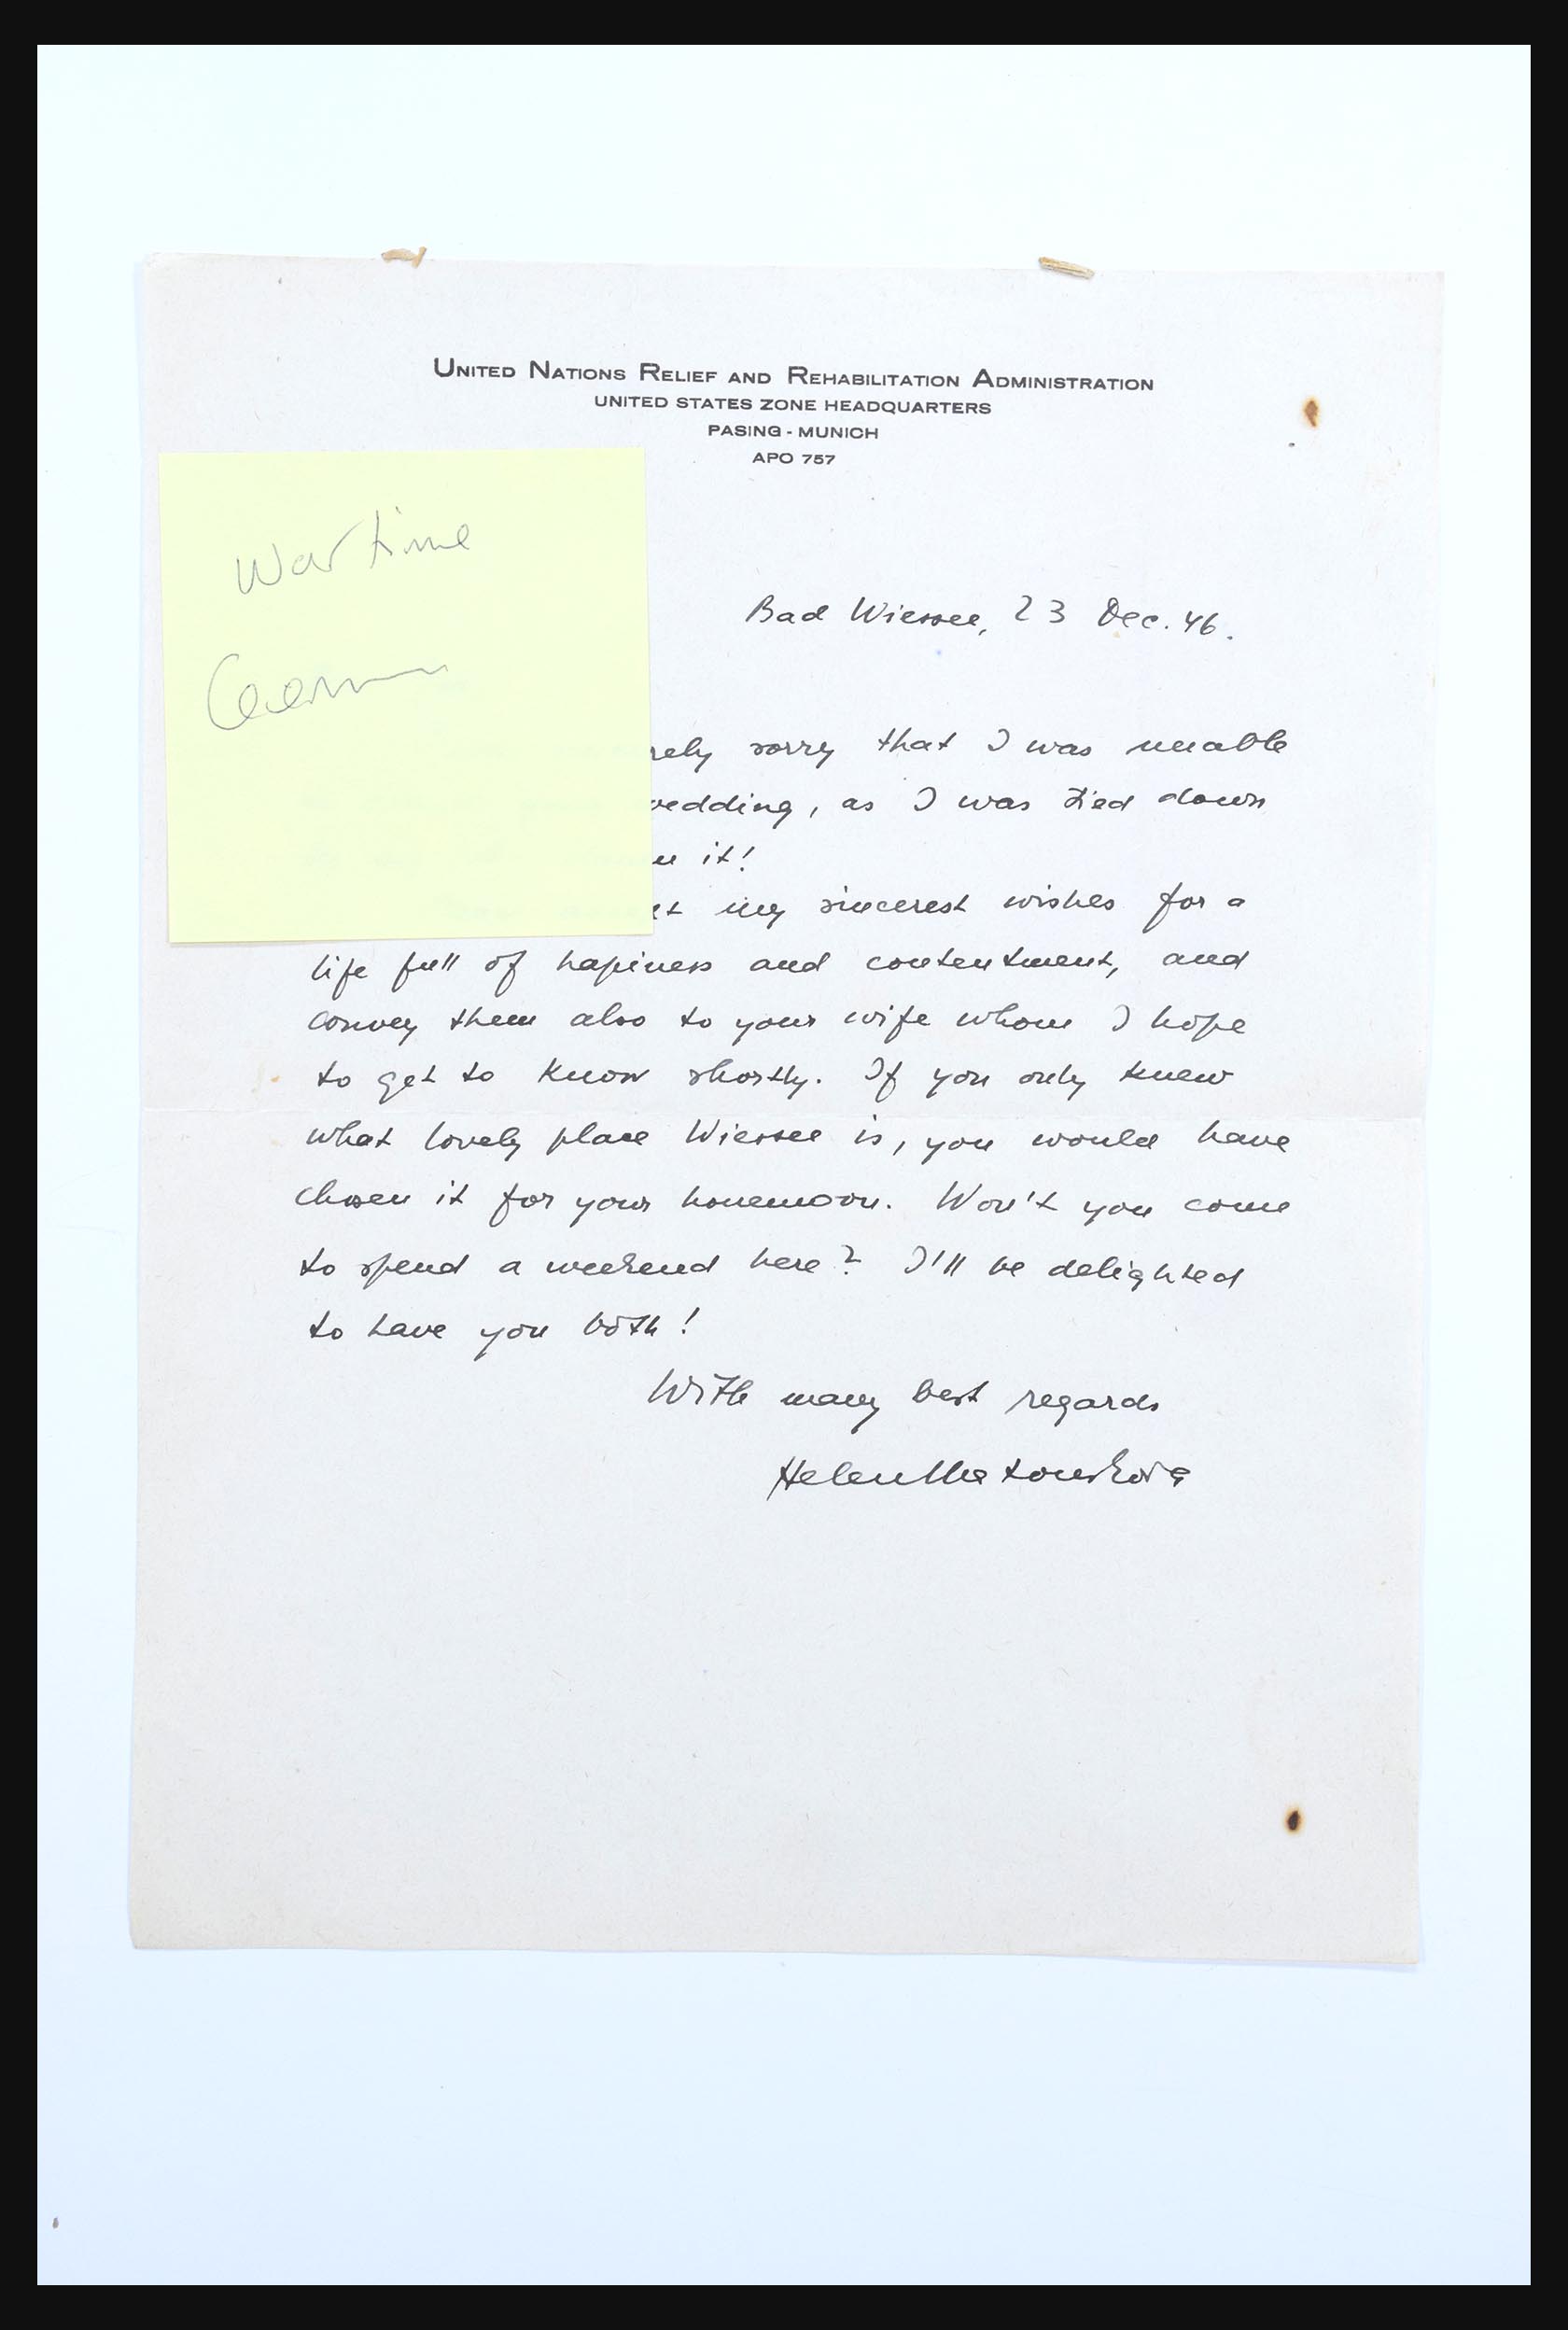 UNITED NATIONS RELIEF AND REHABILITATION ADMINISTRATION
UNITED STATES ZONE HEADQUARTERS
PASING - MUNICH
APO 757
War time
Bad Wiessee, 23 Dec. 46.
rely sorry that I was unable
wedding, as I was tied down
it!
my sincerest wishes for a
life full of hapiness and contentment, and
convey them also to your wife whom I hope
to get to know shortly. If you only knew
what lovely place Wiessee is, you would have
chosen it for your honemoon. Won't you come
to spend a weekend here? I'll be delighted
to have you both!
With many best regards
Helen